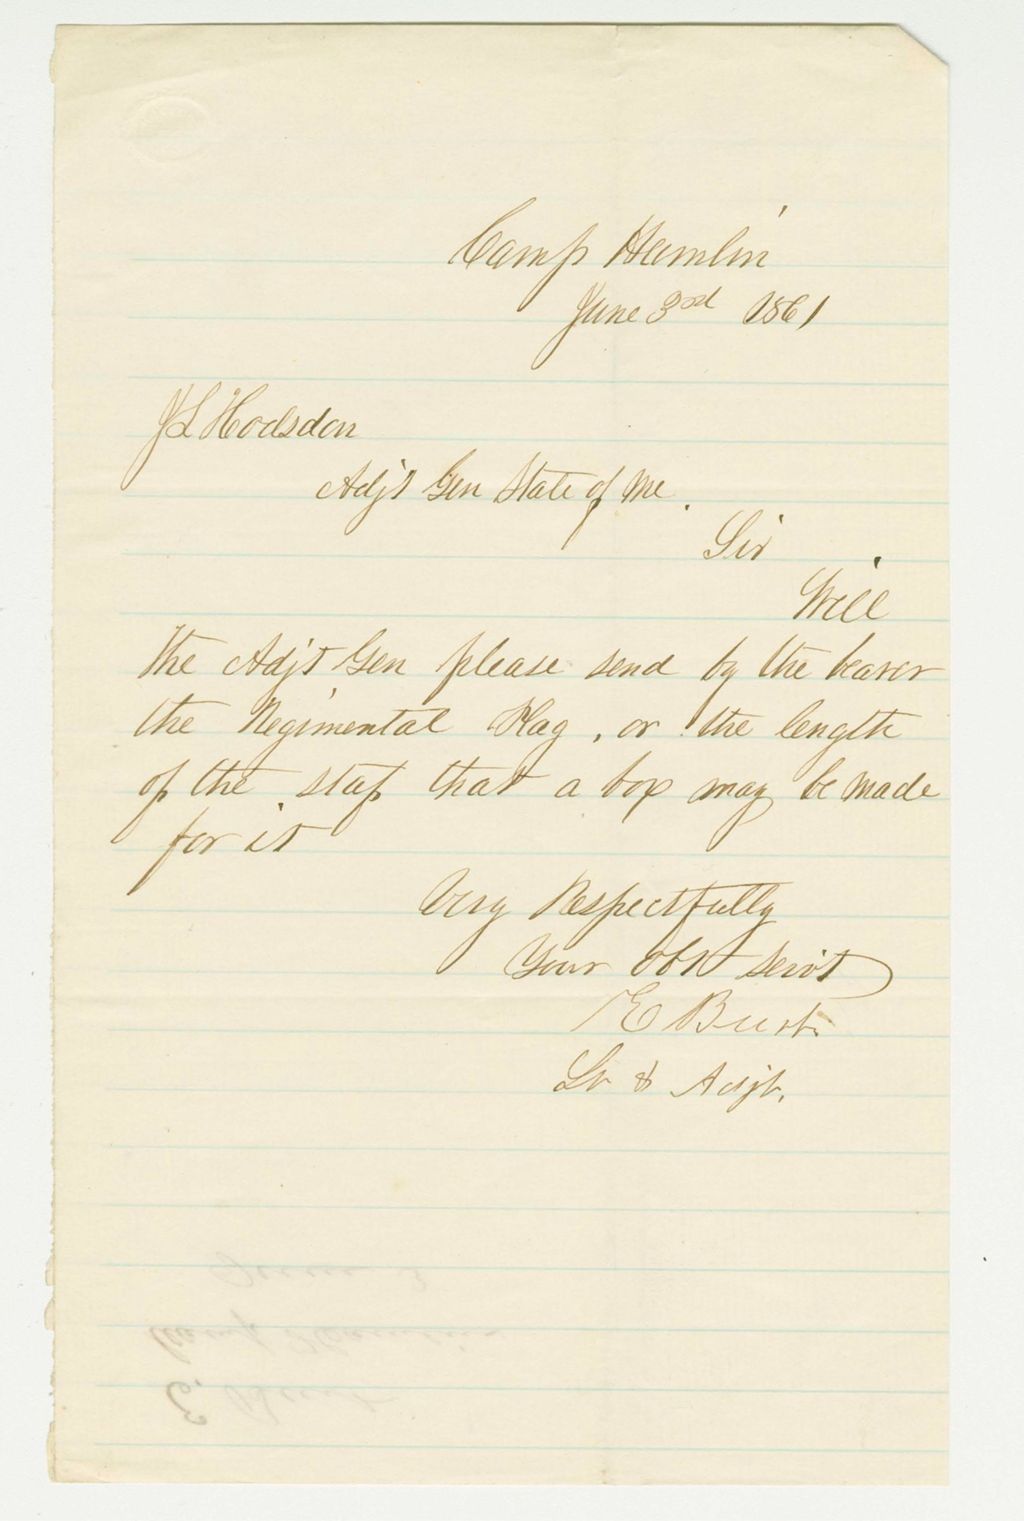 Camp Hamlin
June 3rd 1861
J L Hodsdon
Adjt Gen State of Me.
Sir
Will
the Adjt Gen please send by the bearer
the Regimental Flag, or the length
of the staf that a box may be made
for it
Very Respectfully
Your obt servt
E Burt
Lt & Adjt.